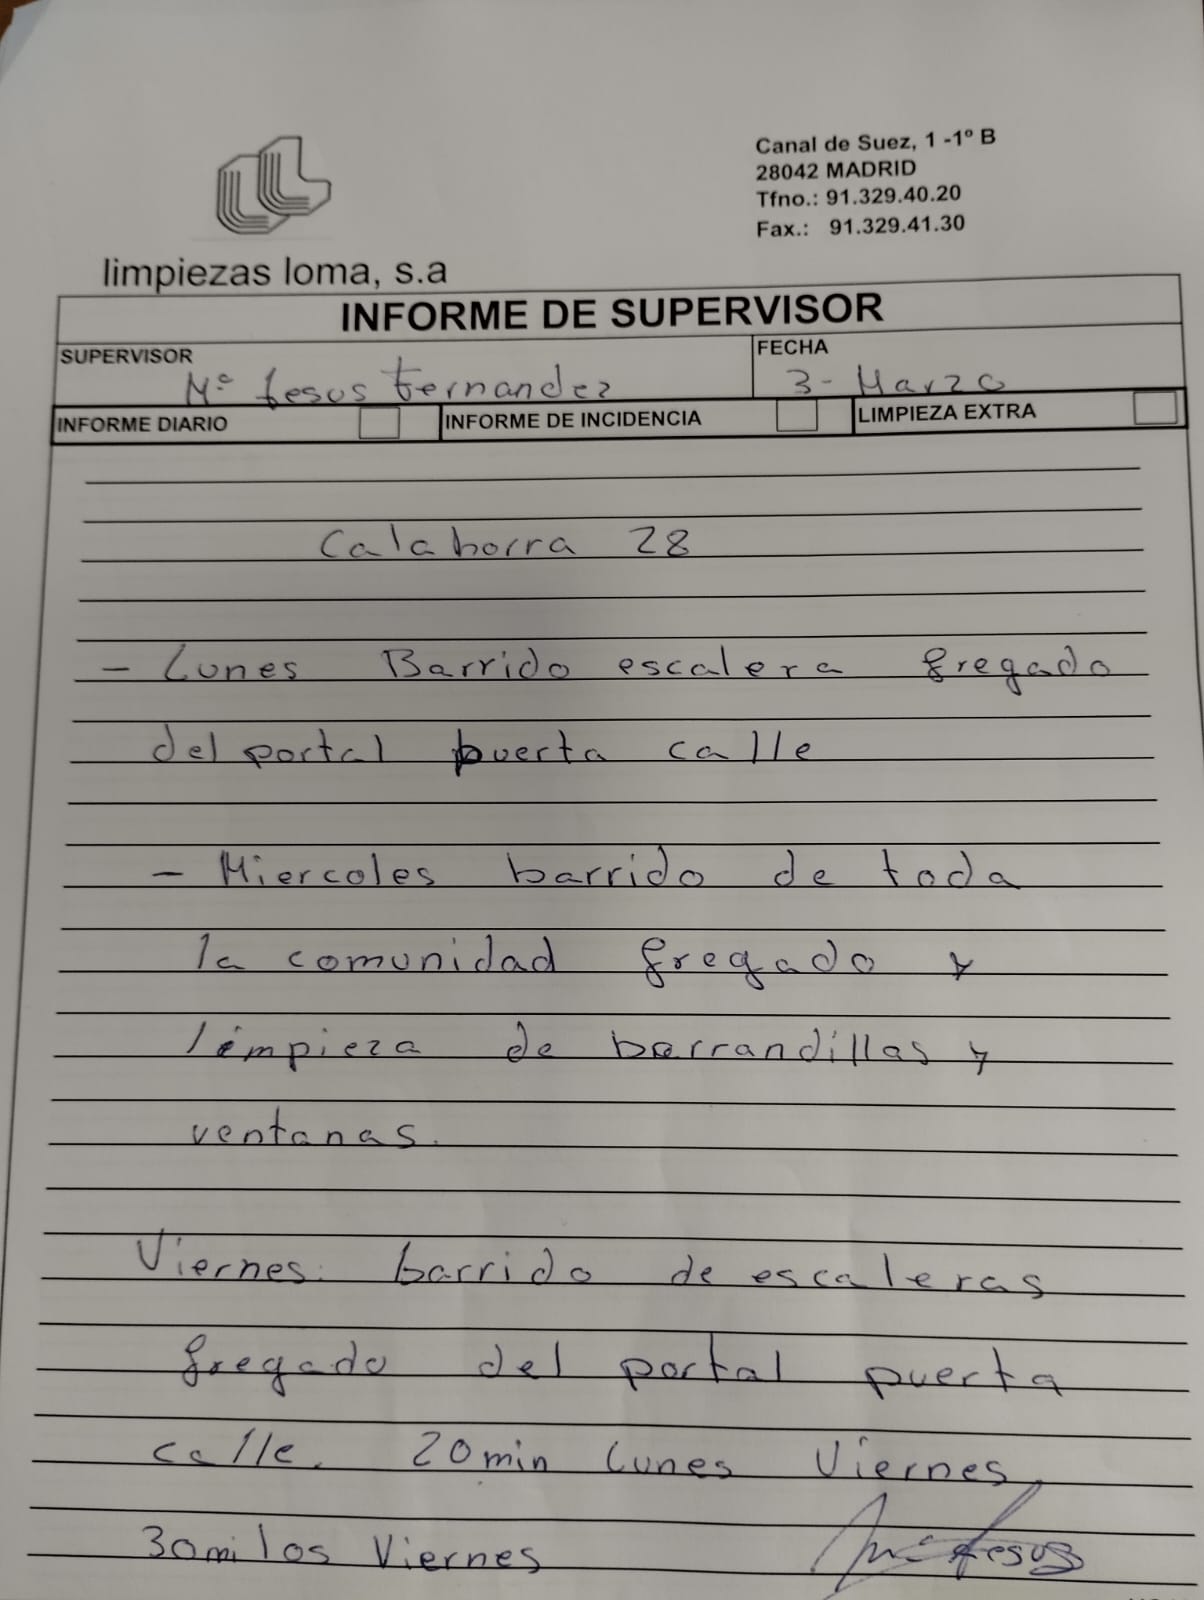 Canal de Suez, 1 -1º B
28042 MADRID
Tfno.: 91.329.40.20
Fax.: 91.329.41.30
limpiezas loma, s.a
INFORME DE SUPERVISOR
SUPERVISOR
Mª Jesus Fernandez
FECHA
3 - Marzo
INFORME DIARIO
INFORME DE INCIDENCIA
LIMPIEZA EXTRA
Calahorra 28
- Lunes Barrido escalera fregado
del portal puerta calle
- Miercoles barrido de toda
la comunidad fregado y
limpieza de barrandillas y
ventanas.
Viernes: barrido de escaleras
fregado del portal puerta
calle. 20min Lunes Viernes,
30mi los Viernes
Mª Jesus